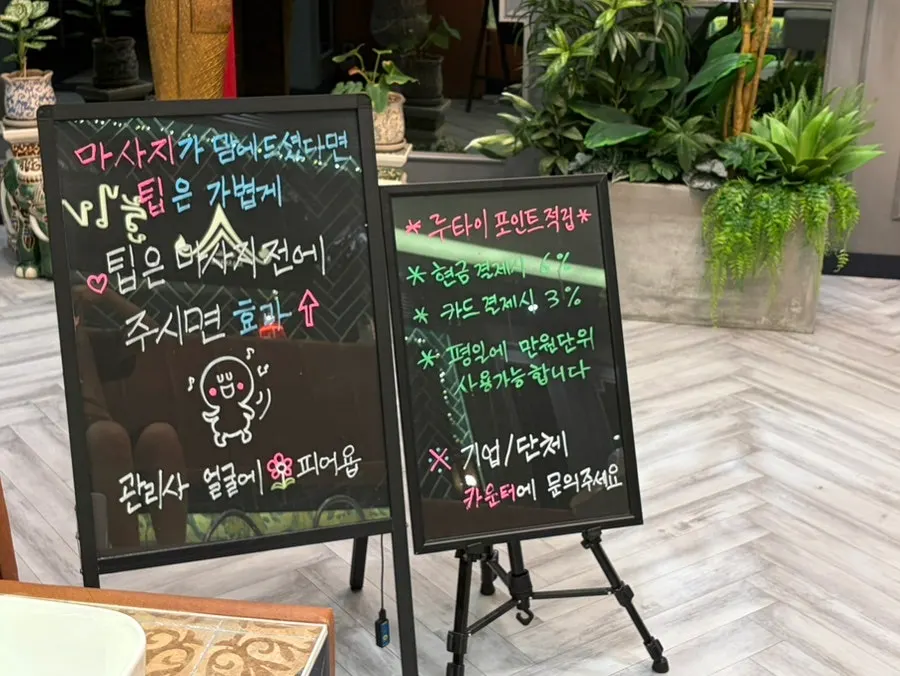 마사지가 맘에드셨다면
팁은 가볍게
팁은 마사지전에
주시면 효과↑
관리사 얼굴에 피어욥
*루타이 포인트적립*
* 현금결제시 6%
* 카드결제시 3%
* 평일에 만원단위
사용가능합니다
※ 기업/단체
카운터에 문의주세요